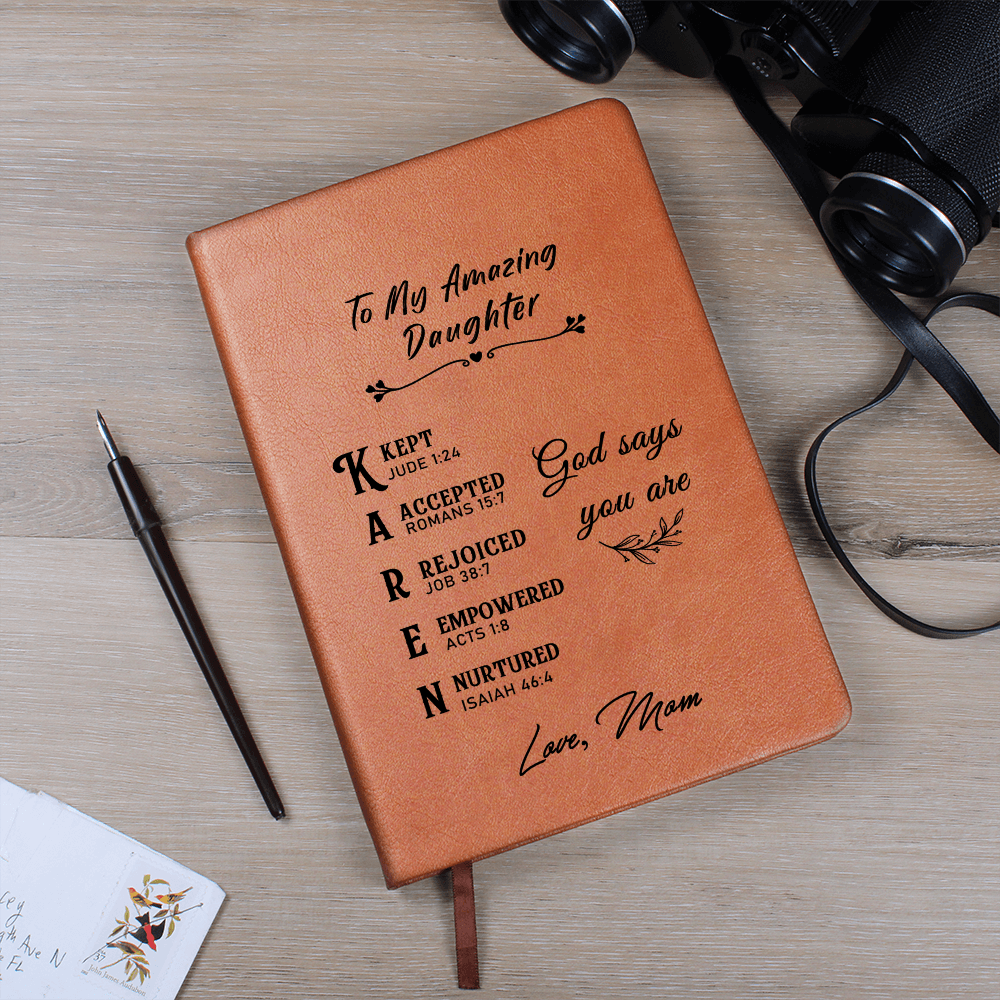 To My Amazing
Daughter
K KEPT
JUDE 1:24
A ACCEPTED
ROMANS 15:7
R REJOICED
JOB 38:7
E EMPOWERED
ACTS 1:8
N NURTURED
ISAIAH 46:4
God says
you are
Love, Mom
Ave N
FL
37
John James Audubon